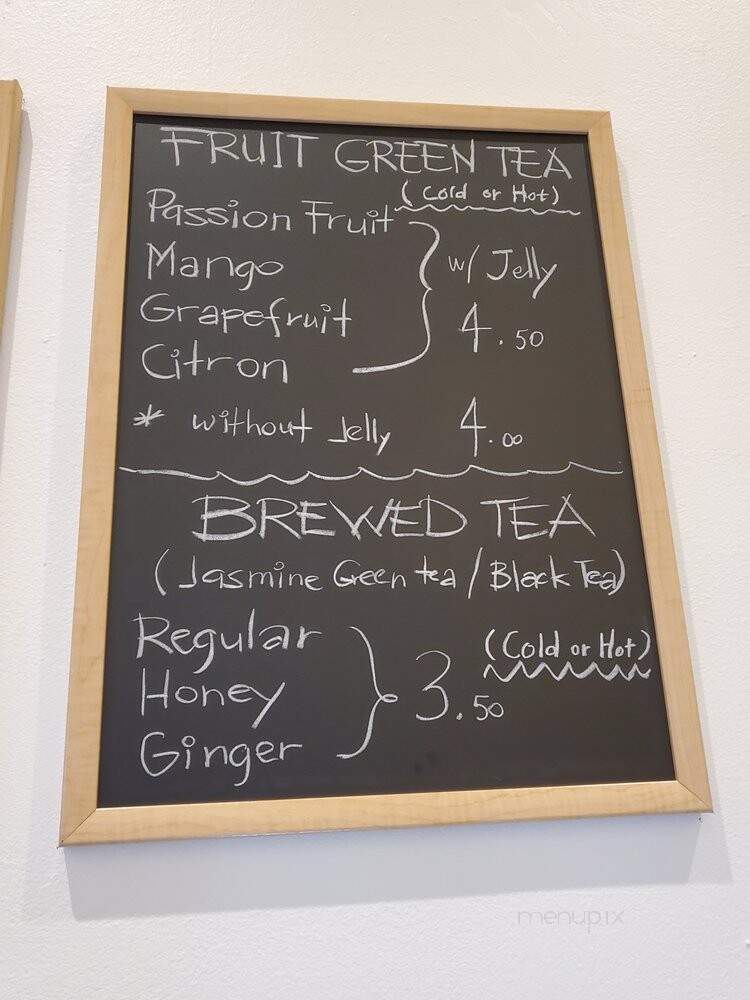 FRUIT GREEN TEA
(Cold or Hot)
Passion Fruit
Mango
w/ Jelly
Grapefruit
4.50
Citron
* without Jelly 4.00
BREWED TEA
(Jasmine Green tea / Black Tea)
Regular
(Cold or Hot)
Honey
3.50
Ginger
menupix